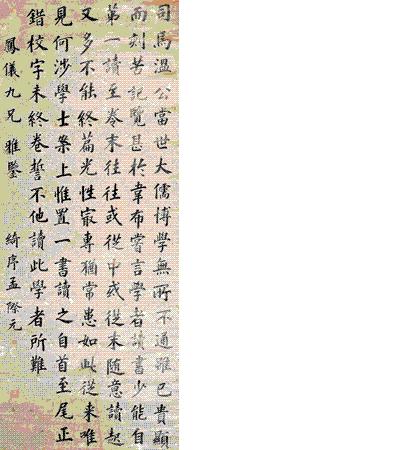 司馬溫公當世大儒博學無所不通雖已貴顯
而刻苦記覽甚於韋布嘗言學者讀書少能自
第一讀至卷末往往或從中或從末隨意讀起
又多不能終篇光性最專猶常患如此從来唯
見何涉學士案上惟置一書讀之自首至尾正
錯校字未終卷誓不他讀此學者所難
鳳儀九兄 雅鑒 綺序孟際元